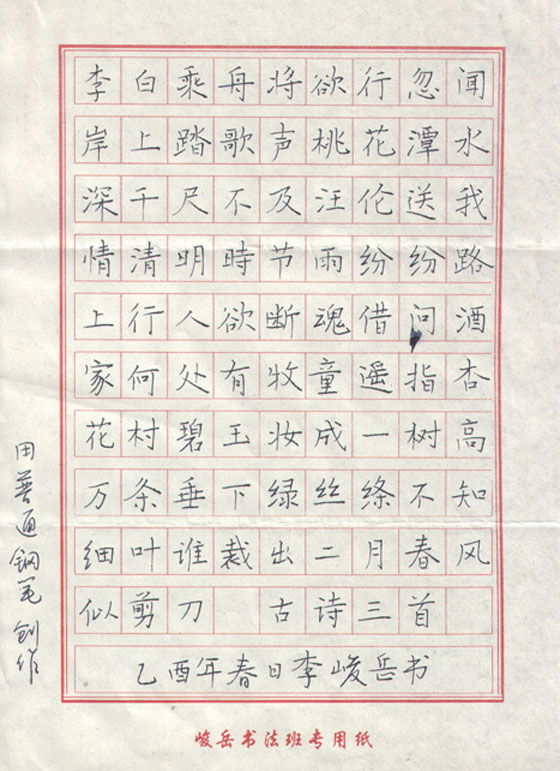 李白乘舟将欲行忽闻
岸上踏歌声桃花潭水
深千尺不及汪伦送我
情清明時节雨纷纷路
上行人欲断魂借问酒
家何处有牧童遥指杏
花村碧玉妆成一树高
万条垂下绿丝绦不知
细叶谁裁出二月春风
似剪刀 古诗三首
乙酉年春日李峻岳书
用普通钢笔创作
峻岳书法班专用纸